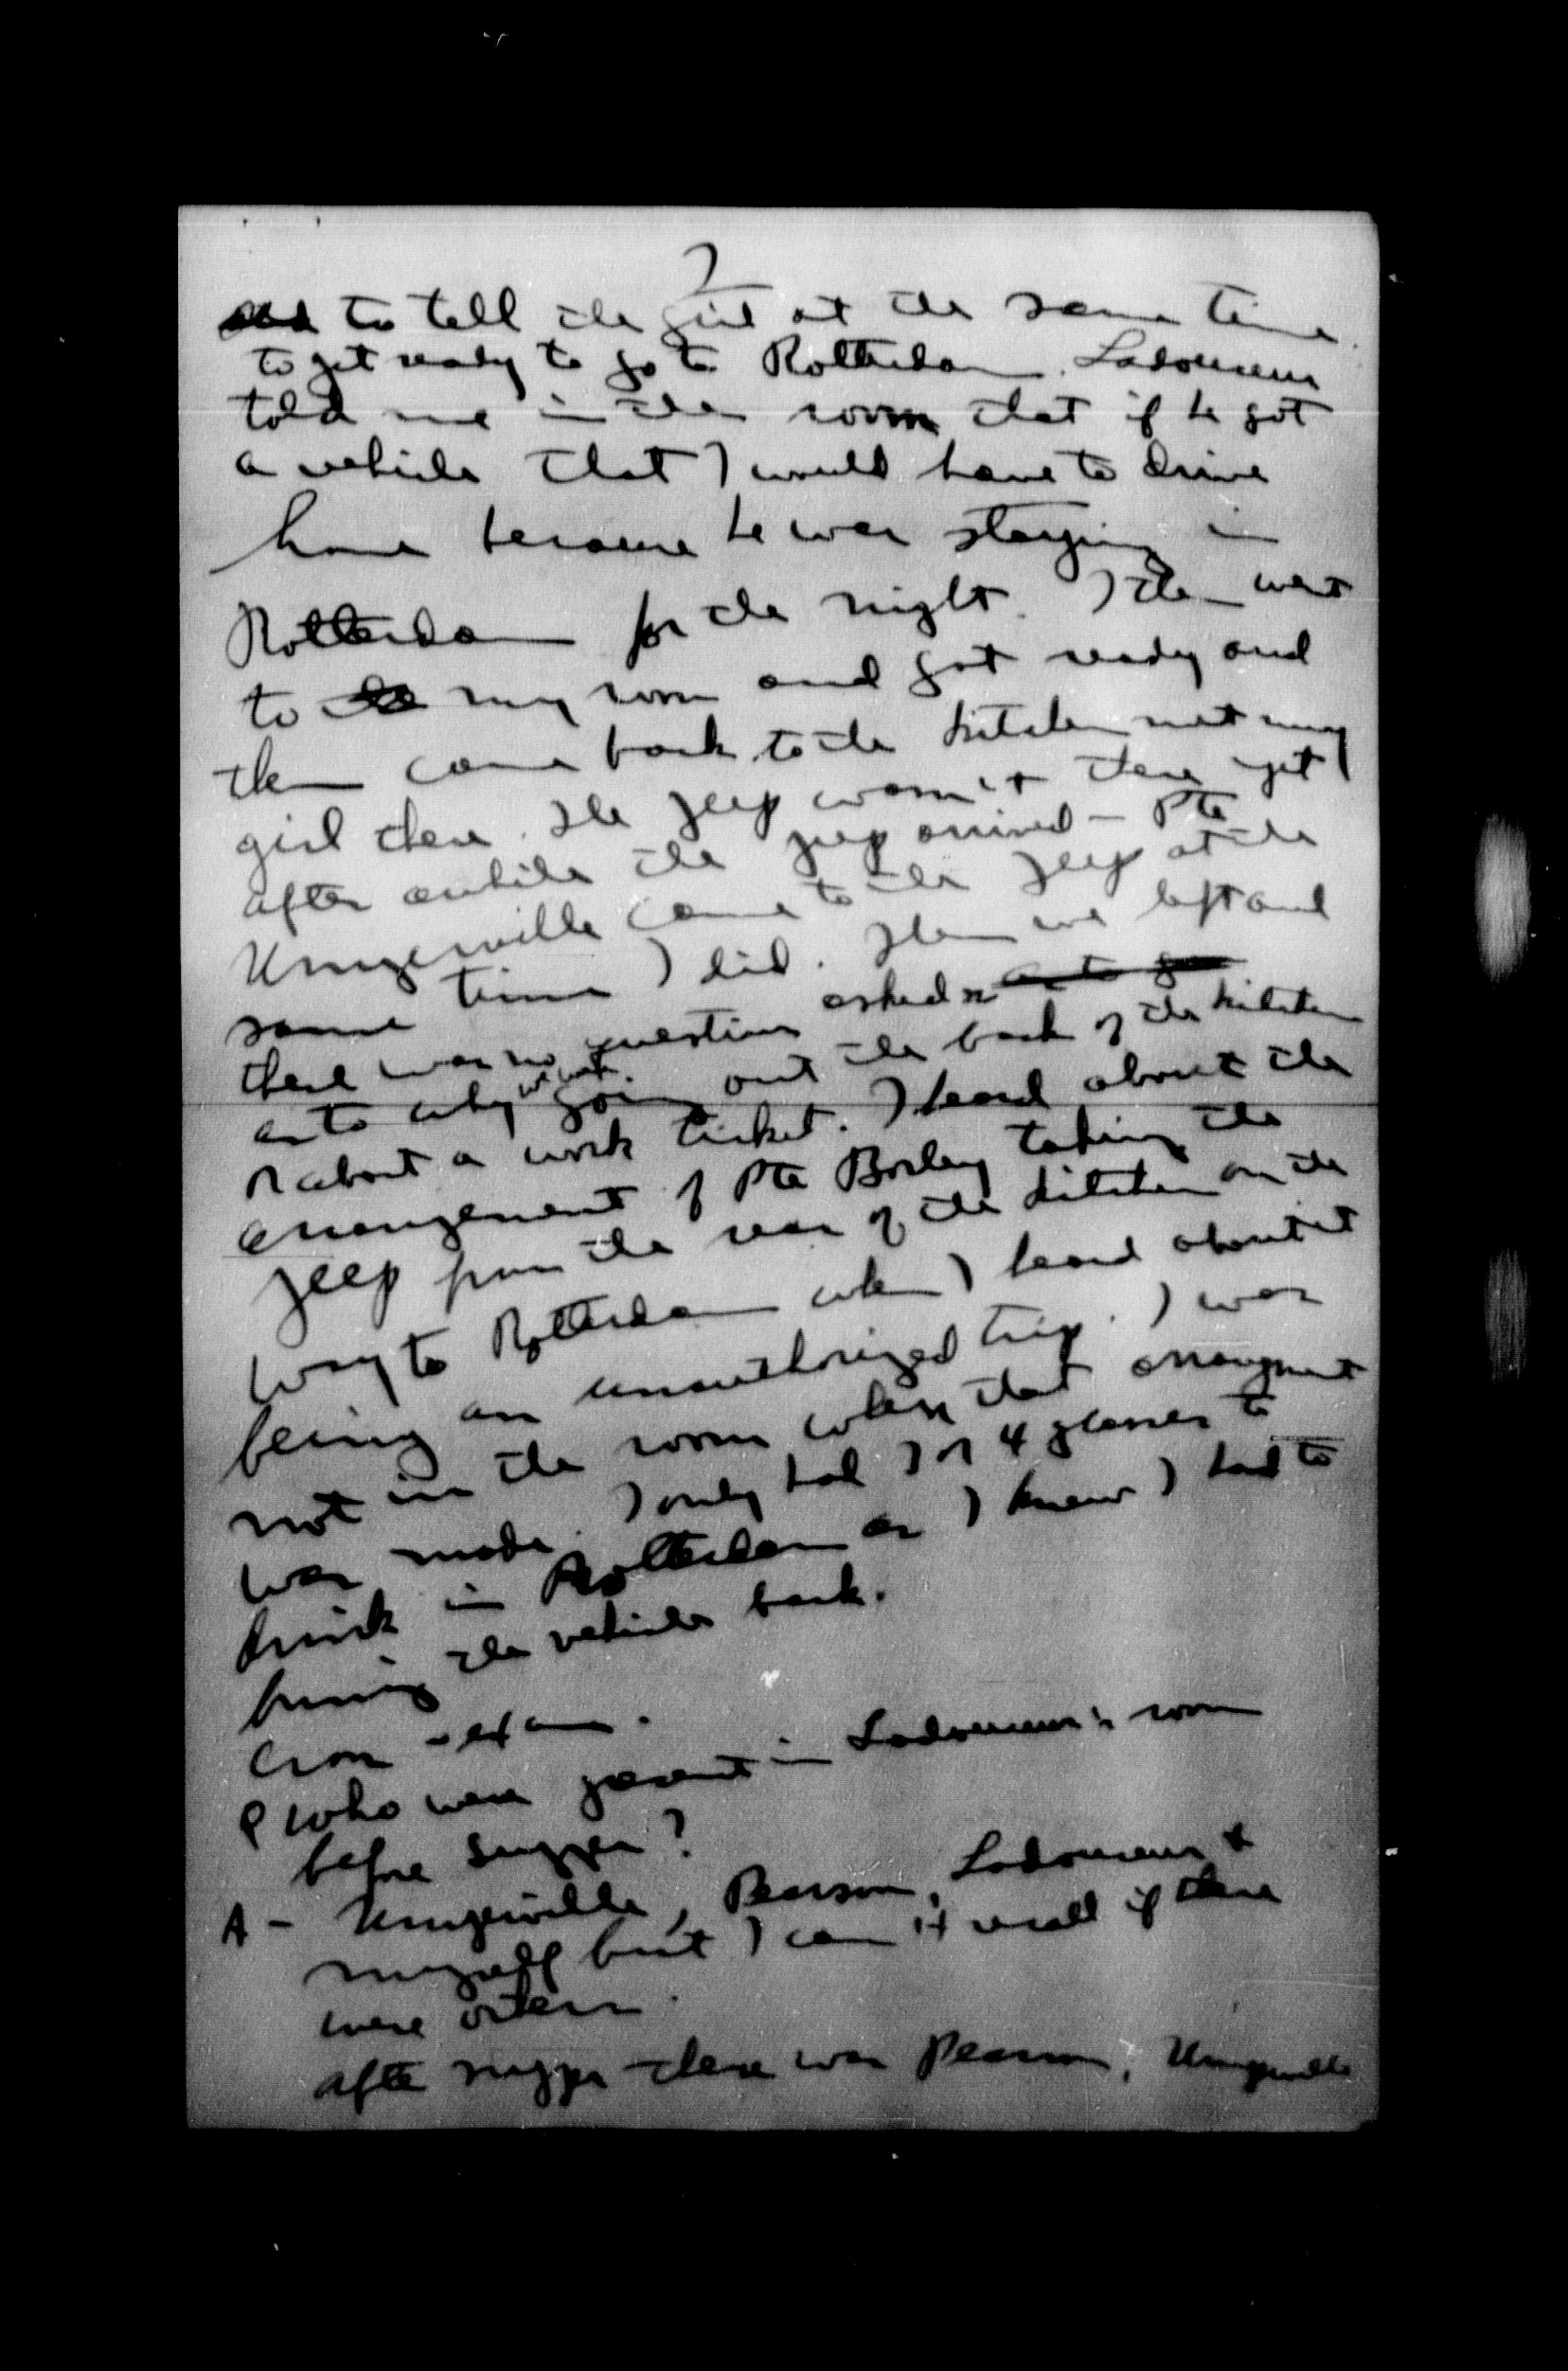 2
and to tell the girl at the same time
to get ready to go to Rotterdam. Ladouceur
told me in the room that if he got
a vehicle that I would have to drive
home because he was staying in
Rotterdam for the night. I then went
to my room and got ready and
then came back to the kitchen met my
girl there. The jeep wasn't there yet
after awhile the jeep arrived - Pte
Umperville came to the jeep at the
same time I did. Then we left and
there was no question asked
as to why we were going out the back of the kitchen
or about a work ticket. I heard about the
arrangement of Pte Borley taking the
jeep from the rear of the kitchen on the
way to Rotterdam when I heard about it
being an unauthorized trip. I was
not in the room when that arrangment
was made. I only had 3 or 4 glasses to
drink in Rotterdam as I knew I had to
bring the vehicle back.
Cross-exam.
Q Who were present in Ladouceur's room
before supper?
A - Umperville, Pearson, Ladouceur &
myself but I can't recall if there
were others.
after supper there was Pearson, Umperville